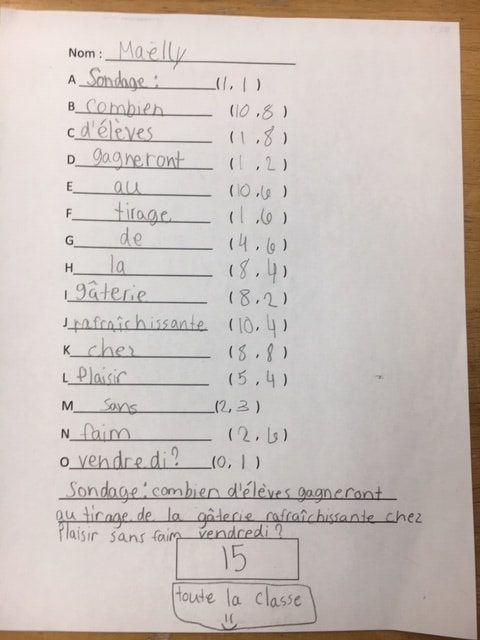 Nom : Maëlly
A Sondage : (1, 1)
B combien (10, 8)
C d'élèves (1, 8)
D gagneront (1, 2)
E au (10, 6)
F tirage (1, 6)
G de (4, 6)
H la (8, 4)
I gâterie (8, 2)
J rafraîchissante (10, 4)
K chez (8, 8)
L Plaisir (5, 4)
M sans (2, 3)
N faim (2, 6)
O vendredi? (0, 1)
Sondage : combien d'élèves gagneront
au tirage de la gâterie rafraîchissante chez
Plaisir sans faim vendredi?
15
toute la classe